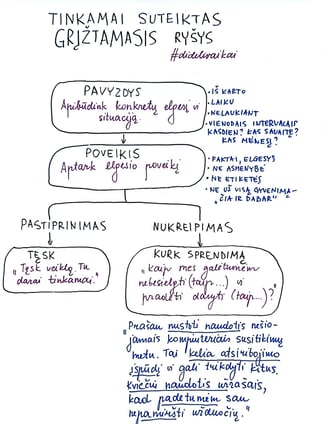 TINKAMAI SUTEIKTAS
GRĮŽTAMASIS RYŠYS
#didelivaikai
PAVYZDYS
Apibūdink konkretų elgesį ir
situaciją.
• IŠ KARTO
• LAIKU
• NELAUKIANT
• VIENODAIS INTERVALAIS
KASDIEN? KAS SAVAITĘ?
KAS MĖNESĮ?
POVEIKIS
Aptark elgesio poveikį
• FAKTAI, ELGESYS
• NE ASMENYBĖ
• NE ETIKETĖS
• NE UŽ VISĄ GYVENIMĄ -
„ČIA IR DABAR"
PASTIPRINIMAS
NUKREIPIMAS
TĘSK
„Tęsk veiklą. Tu
darai tinkamai."
KURK SPRENDIMĄ
„Kaip mes galėtumėm
nebesielgti (taip...) ir
pradėti daryti (taip...)?"
„Prašau nustoti naudotis nešio-
jamais kompiuteriais susitikimų
metu. Tai kelia atsiribojimo
įspūdį ir gali trikdyti kitus.
Kviečiu naudotis užrašais,
kad padėtumėm sau
nepamiršti išduočių."